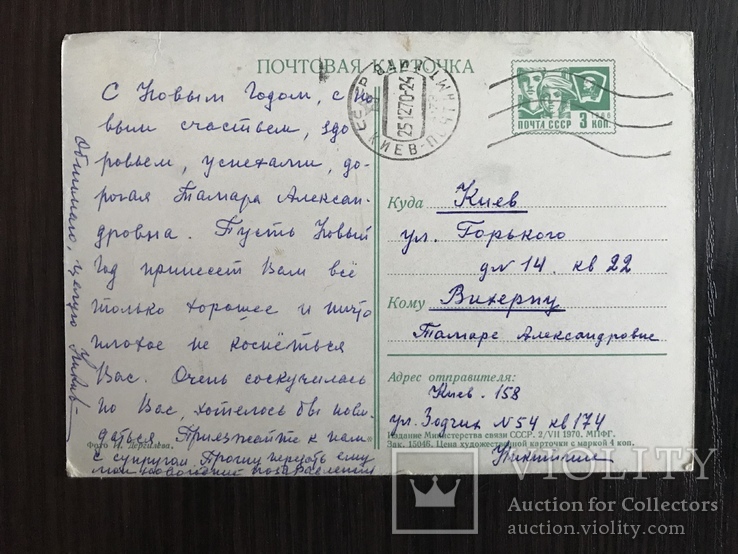 ПОЧТОВАЯ КАРТОЧКА
С Новым Годом, с но
вым счастьем, здо
ровьем, успехами, до
рогая Тамара Алексан
дровна. Пусть Новый
Год принесет Вам всё
только хорошее и ничто
плохое не коснёться
Вас. Очень соскучилась
по Вас, хотелось бы пови
даться. Приезжайте к нам
с супругом. Прошу передать ему
мои новогодние поздравления
Обнимаю, целую
Фото И. Дергилёва.
КИЕВ
251270-24
ПОЧТА СССР 3 КОП.
1966
Куда Киев
ул. Горького
д№ 14. кв 22
Кому Вихерпу
Тамаре Александровне
Адрес отправителя:
Киев. 158
ул. Зодчих №54 кв 174
Издание Министерства связи СССР. 2/VII 1970. МПФГ.
Зак. 15046. Цена художественной карточки с маркой 4 коп.
VIOLITY
Auction for Collectors
auction.violity.com